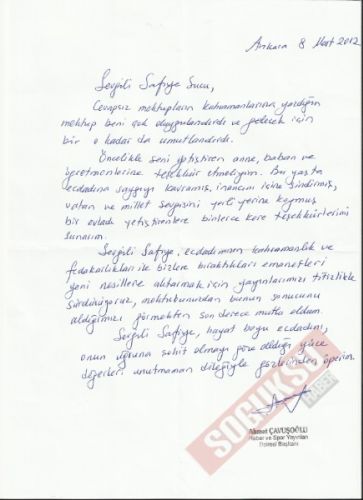 Ankara 8 Mart 2012
Sevgili Safiye Sucu,
Cevapsız mektupların kahramanlarına yazdığın
mektup beni çok duygulandırdı ve gelecek için
bir o kadar da umutlandırdı.
Öncelikle seni yetiştiren anne, baban ve
öğretmenlerine teşekkür etmeliyim. Bu yaşta
ecdadına saygıyı kavramış, inancını içine sindirmiş,
vatan ve millet sevgisini yerli yerine koymuş
bir evladı yetiştirenlere binlerce kere teşekkürlerimi
sunarım.
Sevgili Safiye, ecdadımızın kahramanlık ve
fedakarlıkları ile bizlere bıraktıkları emanetleri
yeni nesillere aktarmak için yayınlarımızı titizlikle
sürdürüyoruz, mektubunuzdan bunun sonucunu
aldığımızı görmekten son derece mutlu oldum.
Sevgili Safiye, hayat boyu ecdadını,
onun uğruna şehit olmayı göze aldığı yüce
değerleri unutmaman dileğiyle gözlerinden öperim.
Ahmet ÇAVUŞOĞLU
Haber ve Spor Yayınları
Dairesi Başkanı
SOGUKSU
HABER